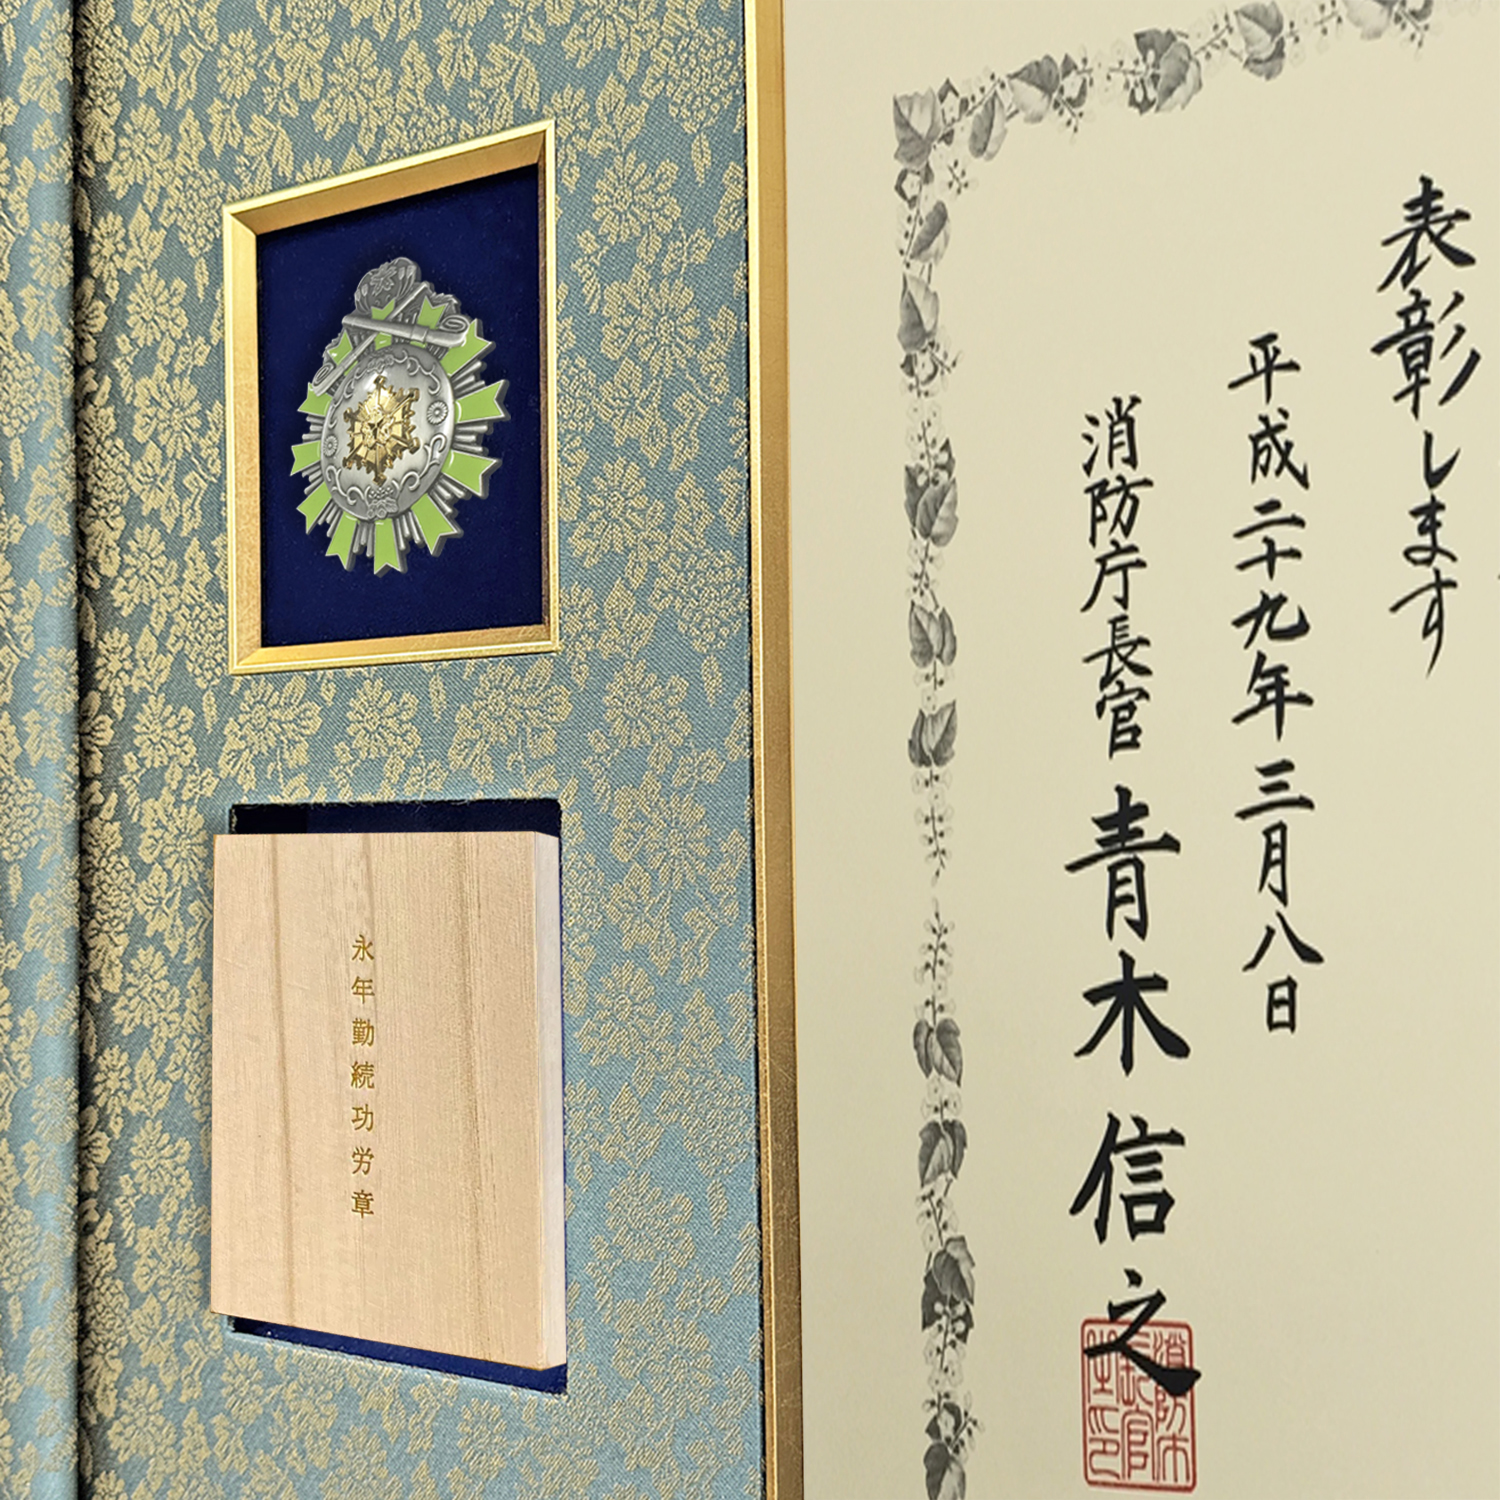 表彰します
平成二十九年三月八日
消防庁長官 青木信之
永年勤続功労章